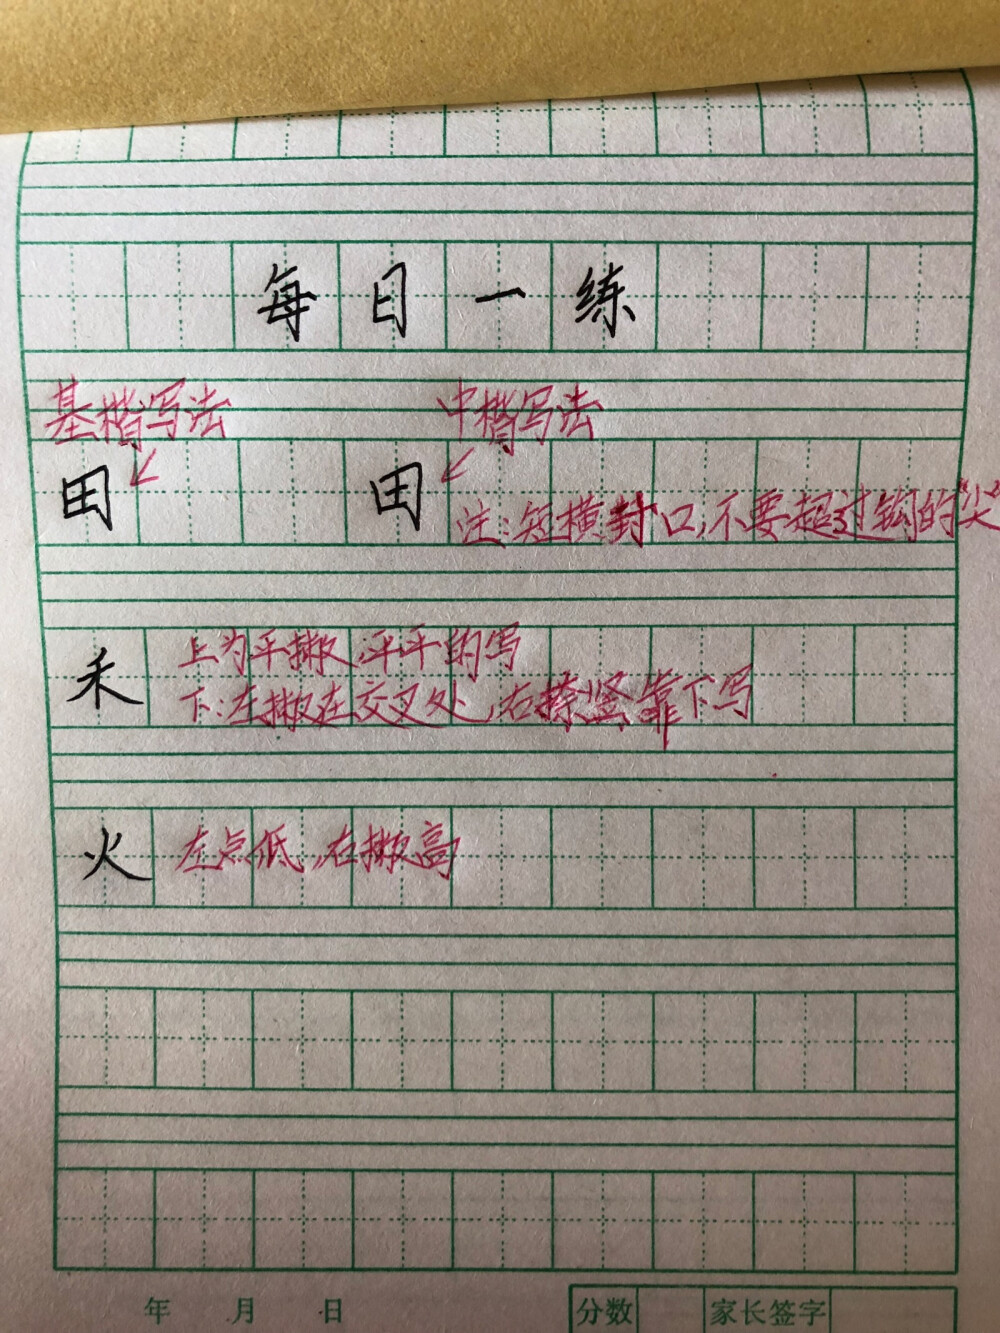 每日一练
基楷写法 中楷写法
田 田
注:短横封口,不要超过钩的“尖”
禾 上为平撇,平平的写
下:左撇在交叉处,右捺竖靠下写
火 左点低,右撇高
年 月 日 分数 家长签字